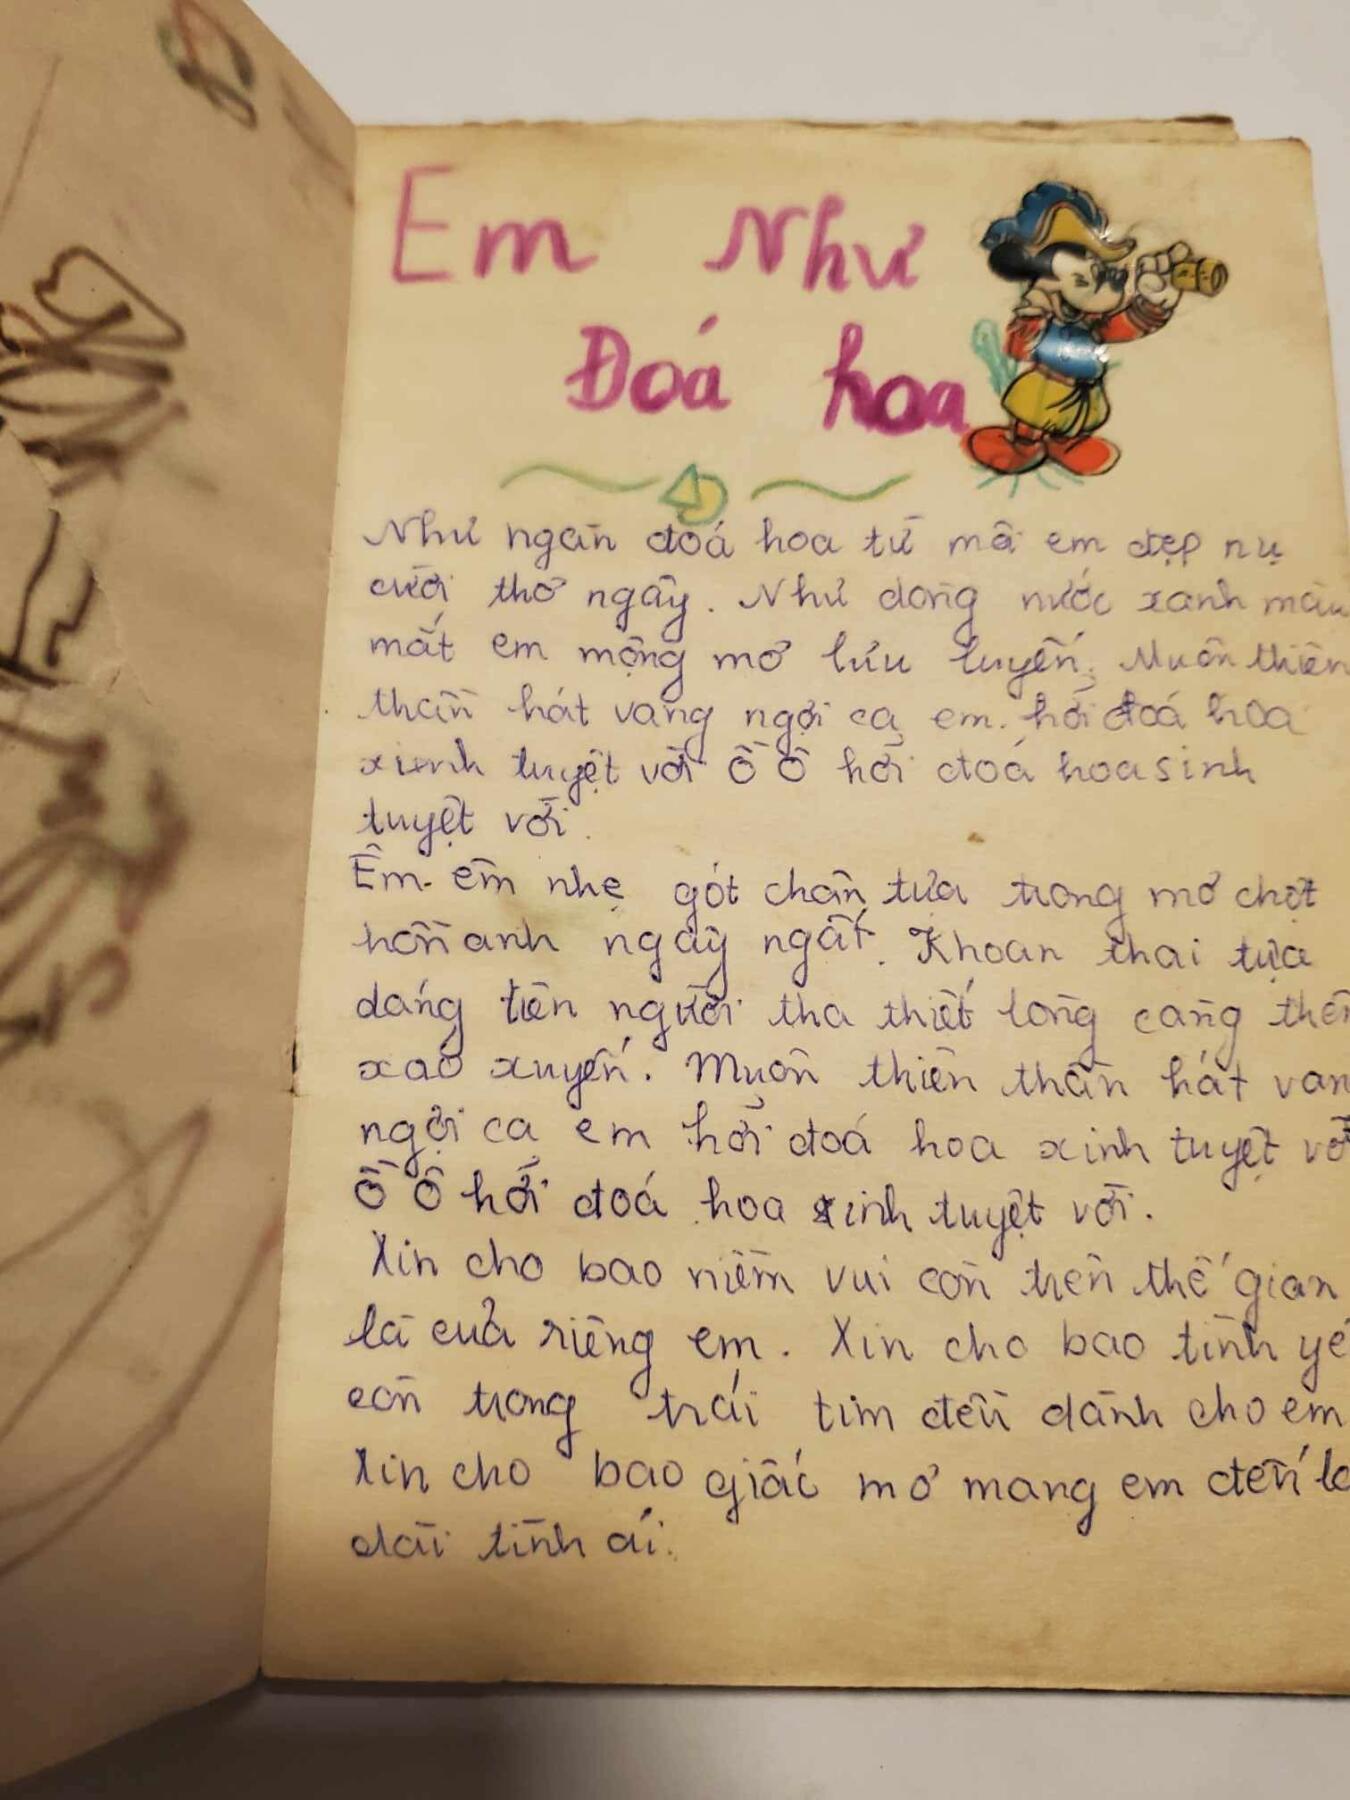 Em Như
Đoá hoa
Như ngàn đoá hoa từ môi em đẹp nụ
cười thơ ngây. Như dòng nước xanh màu
mắt em mộng mơ lưu luyến. Muôn thiên
thần hát vang ngợi ca em. hỡi đoá hoa
xinh tuyệt vời ồ ô hỡi đoá hoa sinh
tuyệt vời.
Êm êm nhẹ gót chân tựa trong mơ chợt
hồn anh ngây ngất. Khoan thai tựa
dáng tiên người tha thiết lòng càng thêm
xao xuyến. Muôn thiên thần hát van
ngợi ca em hỡi đoá hoa xinh tuyệt vờ
Ồ ô hỡi đoá hoa xinh tuyệt vời.
Xin cho bao niềm vui còn trên thế gian
là của riêng em. Xin cho bao tình yê
còn trong trái tim đều dành cho em
Xin cho bao giấc mơ mang em đến lâ
dài tình ái.